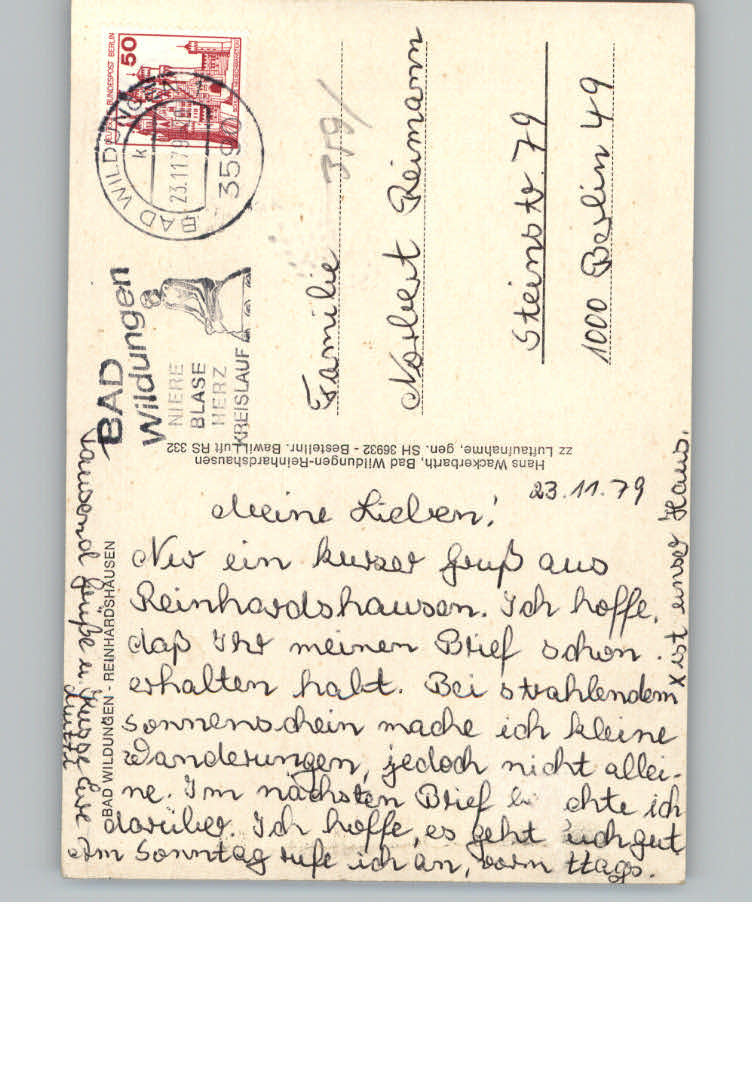 DEUTSCHE BUNDESPOST BERLIN
50
BAD WILDUNGEN
23.11.79
3590
BAD
Wildungen
NIERE
BLASE
HERZ
KREISLAUF
359/
Familie
Norbert Reimann
Steinstr. 79
1000 Berlin 49
Hans Wackerbarth, Bad Wildungen-Reinhardshausen
zz Luftaufnahme, gen. SH 36932 - Bestellnr. BawiLLuft RS 332
BAD WILDUNGEN - REINHARDSHAUSEN
23.11.79
Meine Lieben!
Nur ein kurzer Gruß aus
Reinhardshausen. Ich hoffe,
daß Ihr meinen Brief schon
erhalten habt. Bei strahlendem
Sonnenschein mache ich kleine
Wanderungen, jedoch nicht allei-
ne. Im nächsten Brief be chte ich
darüber. Ich hoffe, es geht uch gut
Am Sonntag rufe ich an, vorm ttags.
Tausend Grüße u. Küsse Eure
Mutti
x ist unser Haus.